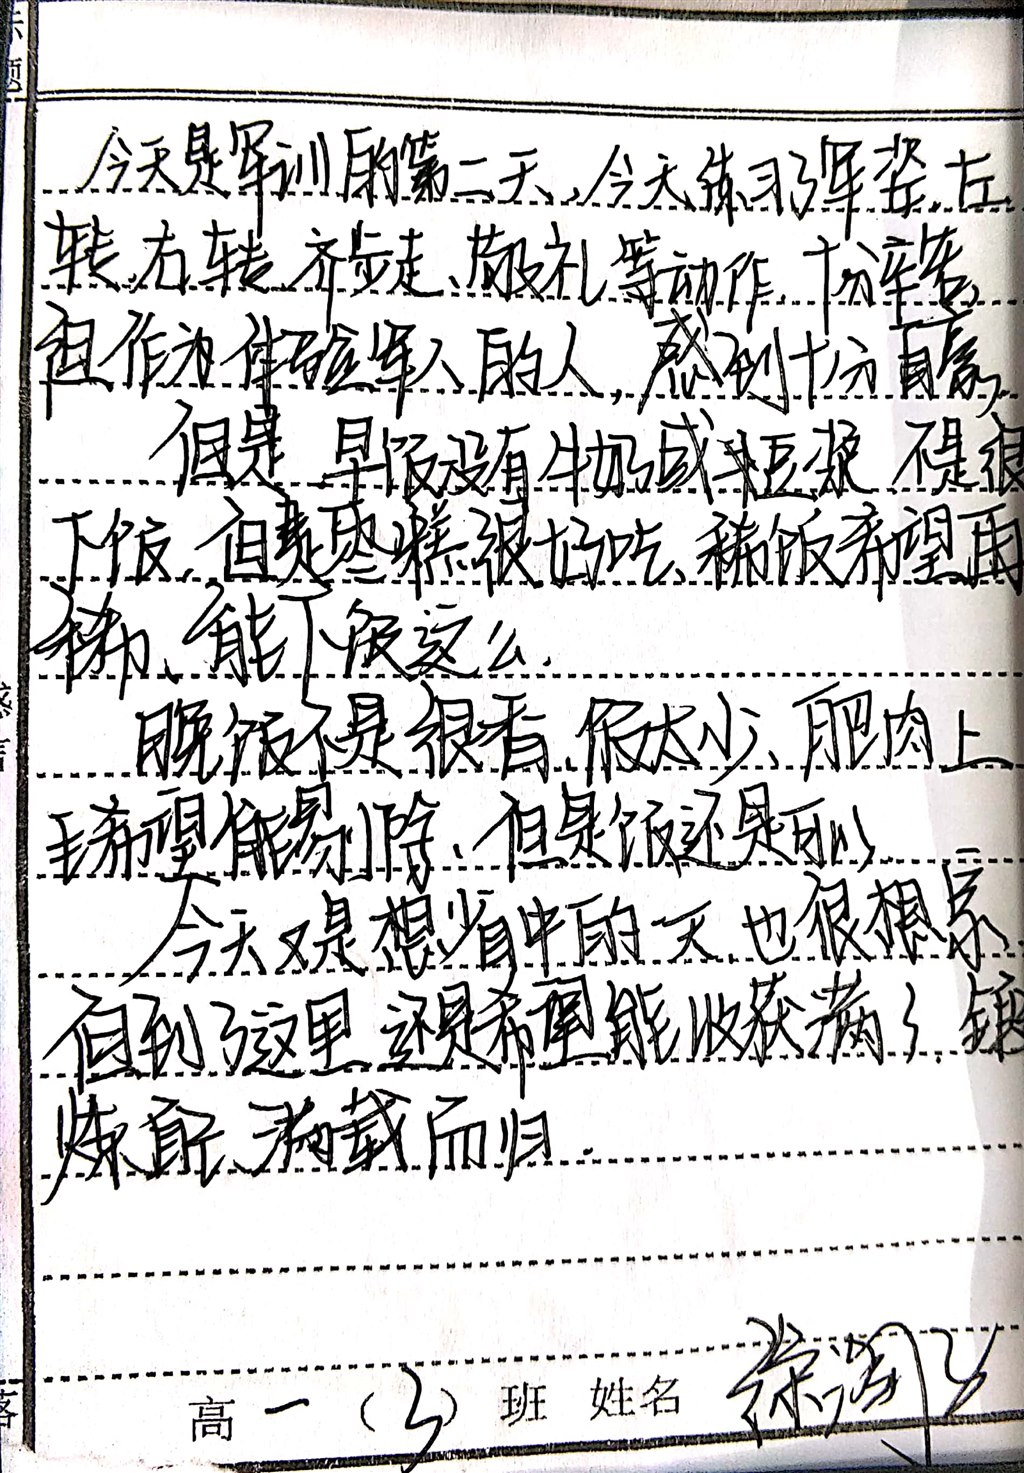 今天是军训的第二天,今天练习了军姿、左
转、右转、齐步走、敬礼等动作,十分辛苦,
但作为体验军人的人,感到十分自豪,
但是,早饭没有牛奶或豆浆,不是很
下饭,但是枣糕很好吃、稀饭希望再
稀、能下饭这么.
晚饭不是很香、饭太少、肥肉上
毛希望能剔除、但是饭还是可以
今天又是想省中的一天,也很想家、
但到了这里,还是希望能收获满了,锻
炼自己、满载而归.
高一(3)班 姓名